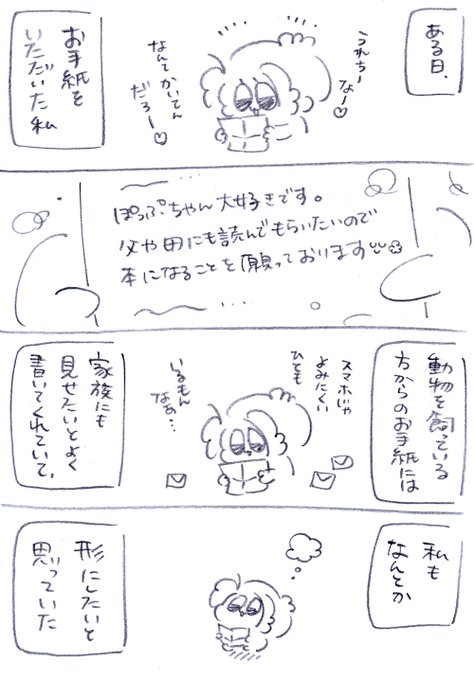 ある日、
うれちー
なー♡
なんてかいてん
だろー♡
お手紙を
いただいた私
ぽっぷちゃん大好きです。
父や母にも読んでもらいたいので
本になることを願っております
動物を飼っている
方からのお手紙には
スマホじゃ
よみにくい
ひとも
いるもん
なぁ…
家族にも
見せたいとよく
書いてくれていて、
私も
なんとか
形にしたいと
思っていた